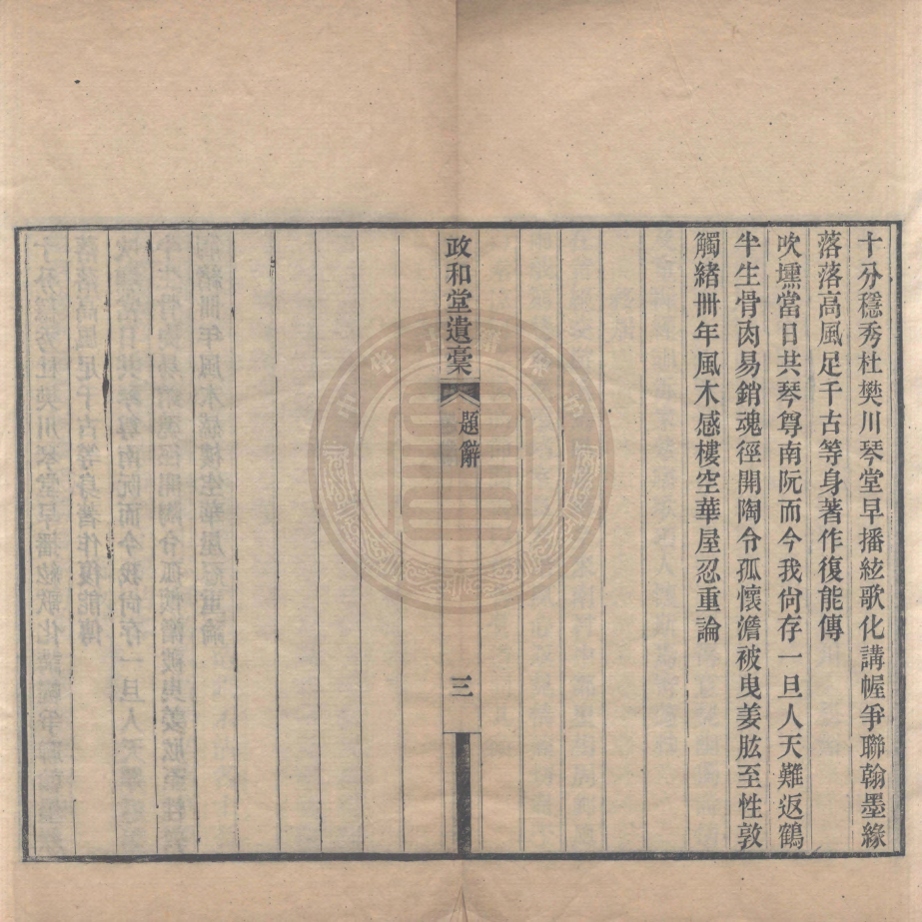 十分穩秀杜樊川琴堂早播絃歌化講幄爭聯翰墨緣
落落高風足千古等身著作復能傳
吹壎當日共琴尊南阮而今我尙存一旦人天難返鶴
半生骨肉易銷魂徑開陶令孤懷澹被曳姜肱至性敦
觸緒卌年風木感樓空華屋忍重論
政和堂遺稾
題辭
三